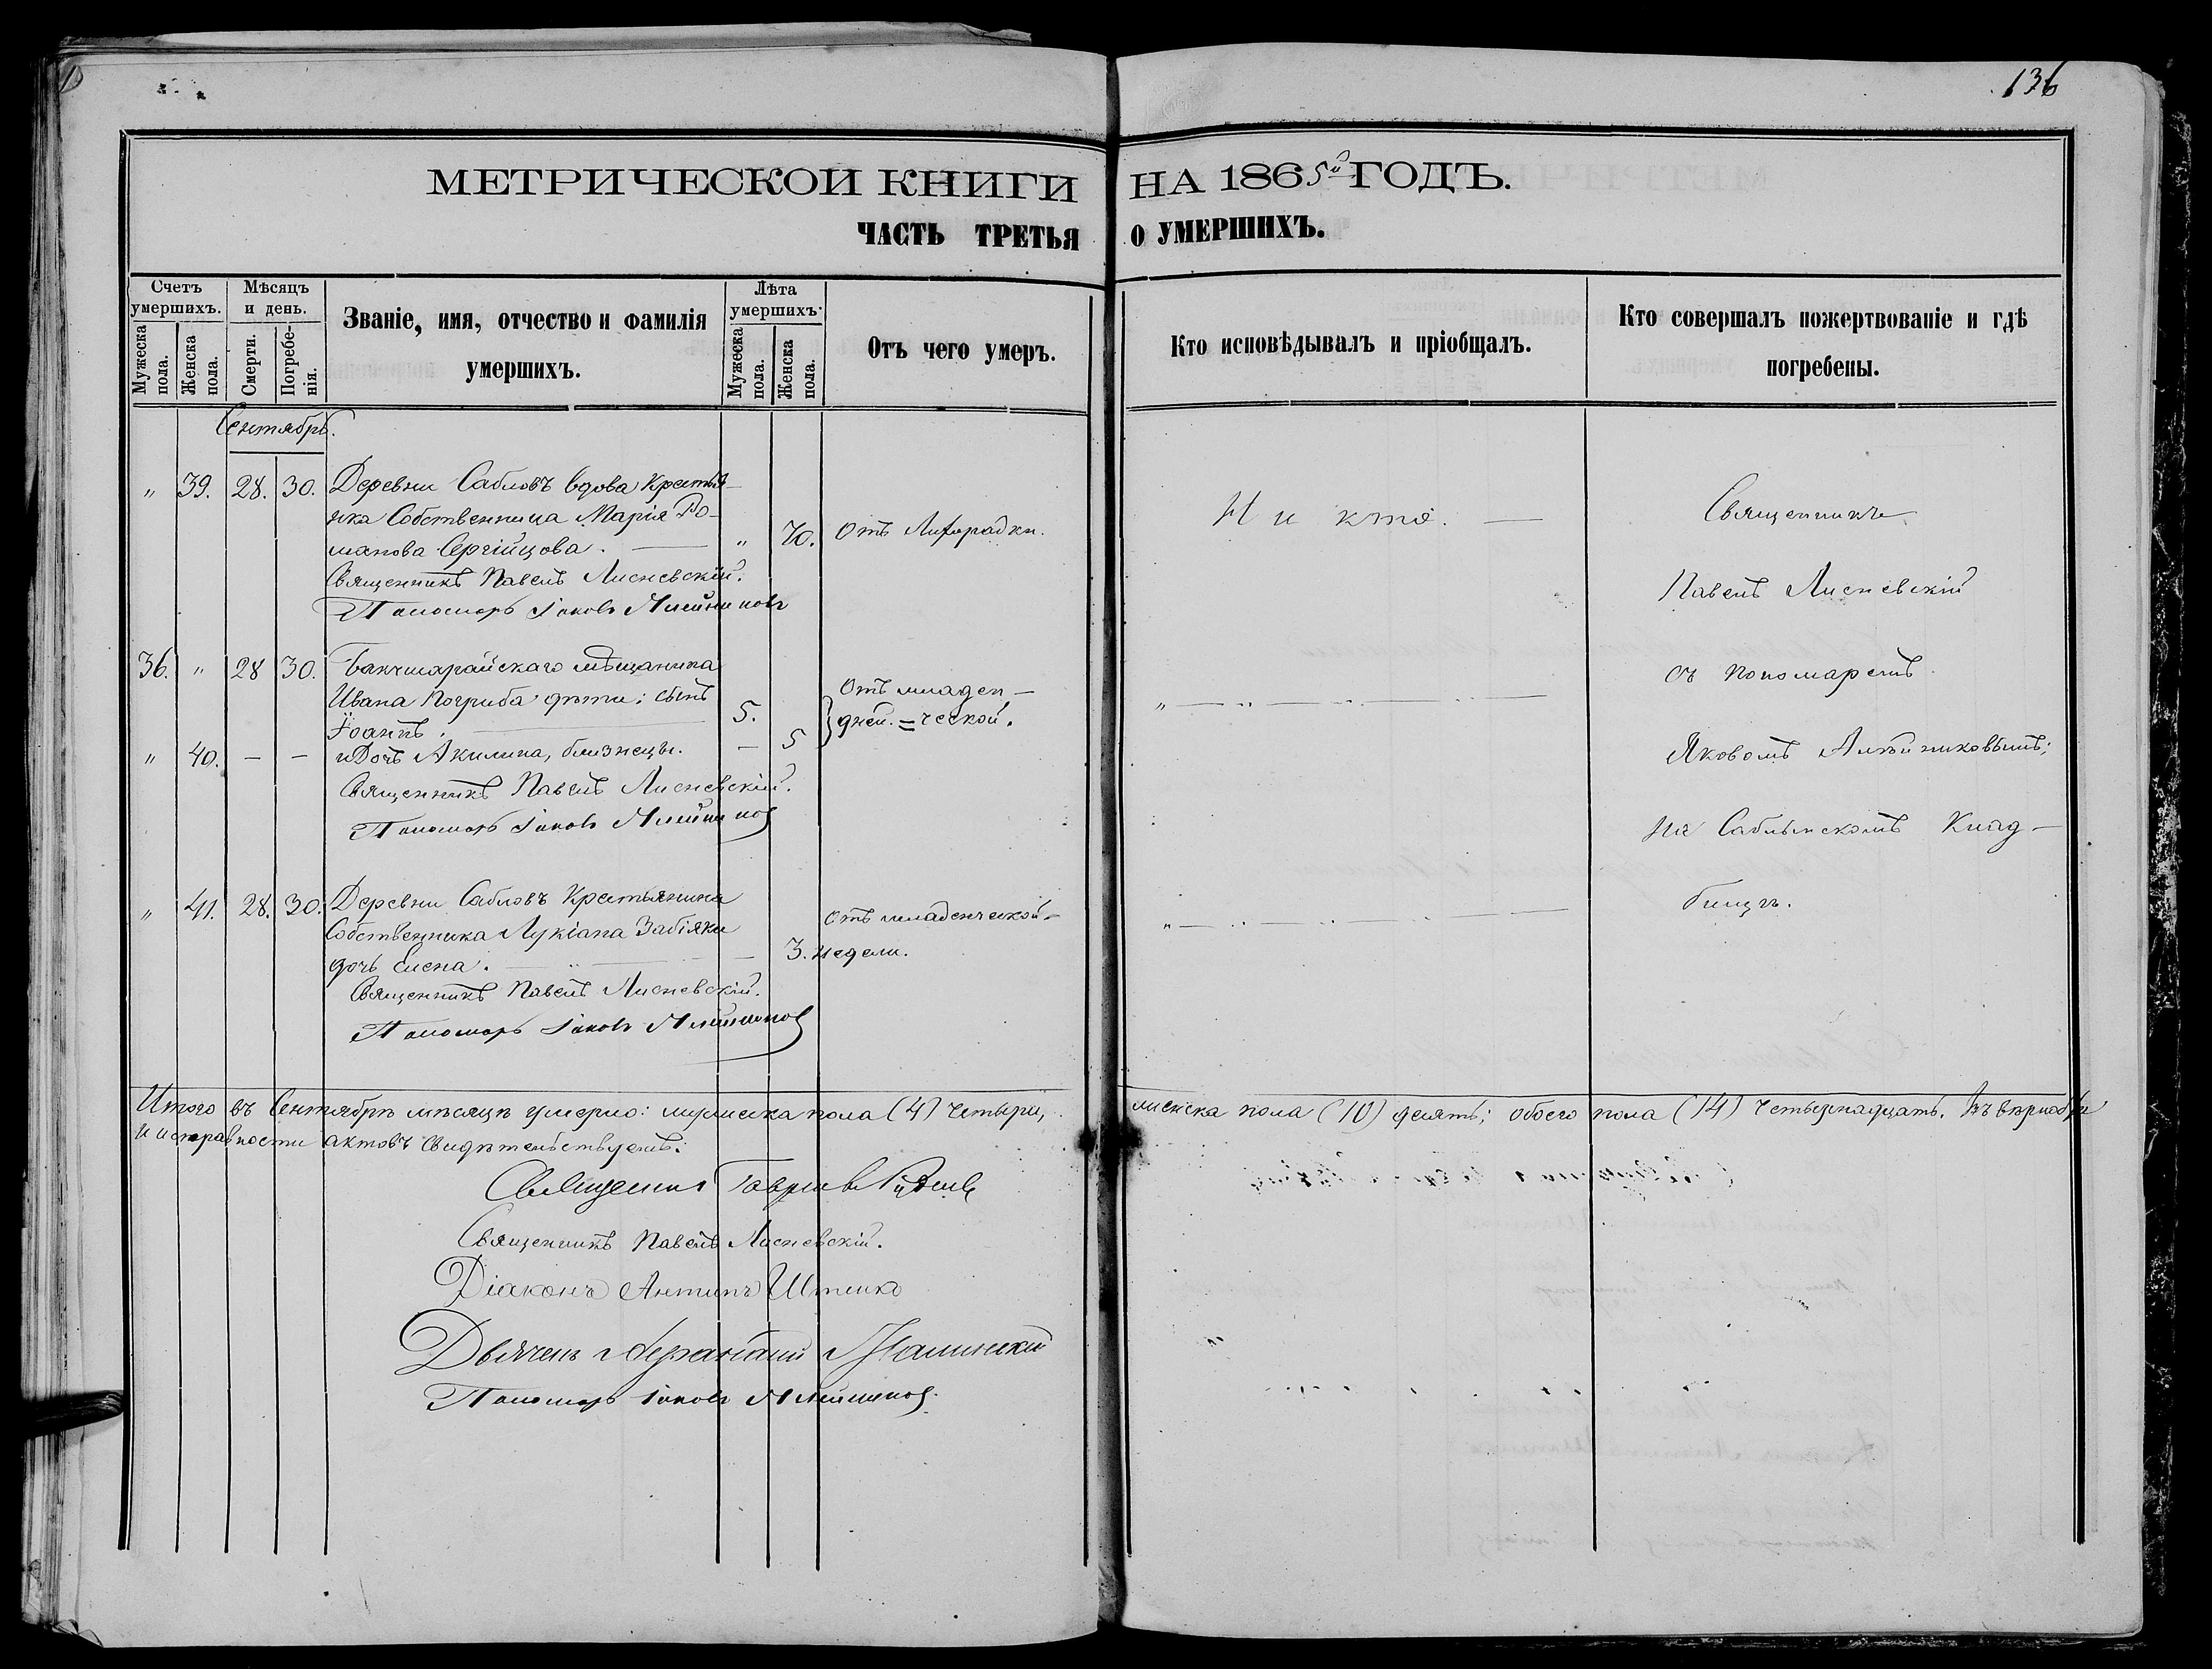 136
МЕТРИЧЕСКОЙ КНИГИ НА 1865й ГОДЪ.
ЧАСТЬ ТРЕТЬЯ О УМЕРШИХЪ.
Счетъ умершихъ.
Мужеска пола.
Женска пола.
Мѣсяцъ и день.
Смерти.
Погребенія.
Званіе, имя, отчество и фамилія
умершихъ.
Лѣта умершихъ.
Мужеска пола.
Женска пола.
Отъ чего умеръ.
Кто исповѣдывалъ и пріобщалъ.
Кто совершалъ пожертвованіе и гдѣ
погребены.
Сентябрь.
" 39. 28. 30. Деревни Сабловъ вдова крестья-
нка Собственница Марія Ро-
манова Сергійцова. — " 70. Отъ Лихорадки.
Священникъ Павелъ Лисневскій.
Пономарь Іаковъ Алейниковъ
Никто. —
36. " 28 30. Бакчисарайскаго мѣщанина
Ивана Погриба дѣти: сынъ
Іоаннъ. — 5.
" 40. — — и Дочь Акилина, близнецы. — 5
дней.
Отъ младен-
=ческой.
Священникъ Павелъ Лисневскій.
Пономарь Іаковъ Алейников
" — " — — —
" 41. 28. 30. Деревни Сабловъ Крестьянина
Собственника Лукіана Забіяки
дочь Елена. — " — — 3. недели.
Отъ младенческой.
Священникъ Павелъ Лисневскій.
Пономарь Іаковъ Алейников
" — " — — —
Священникъ
Павелъ Лисневскій
съ пономаремъ
Яковомъ Алѣйниковымъ;
на Саблынскомъ Клад-
бищѣ.
Итого въ Сентябрѣ мѣсяцѣ умерло: мужеска пола (4) четыри, женска пола (10) десять; обоего пола (14) четырнадцать. Въ вѣрности
и исправности актовъ свидѣтельствуемъ:
Священник Гавриил
Священникъ Павелъ Лисневскій.
Діаконъ Антипъ
Дьячекъ
Пономарь Іаковъ Алейников.